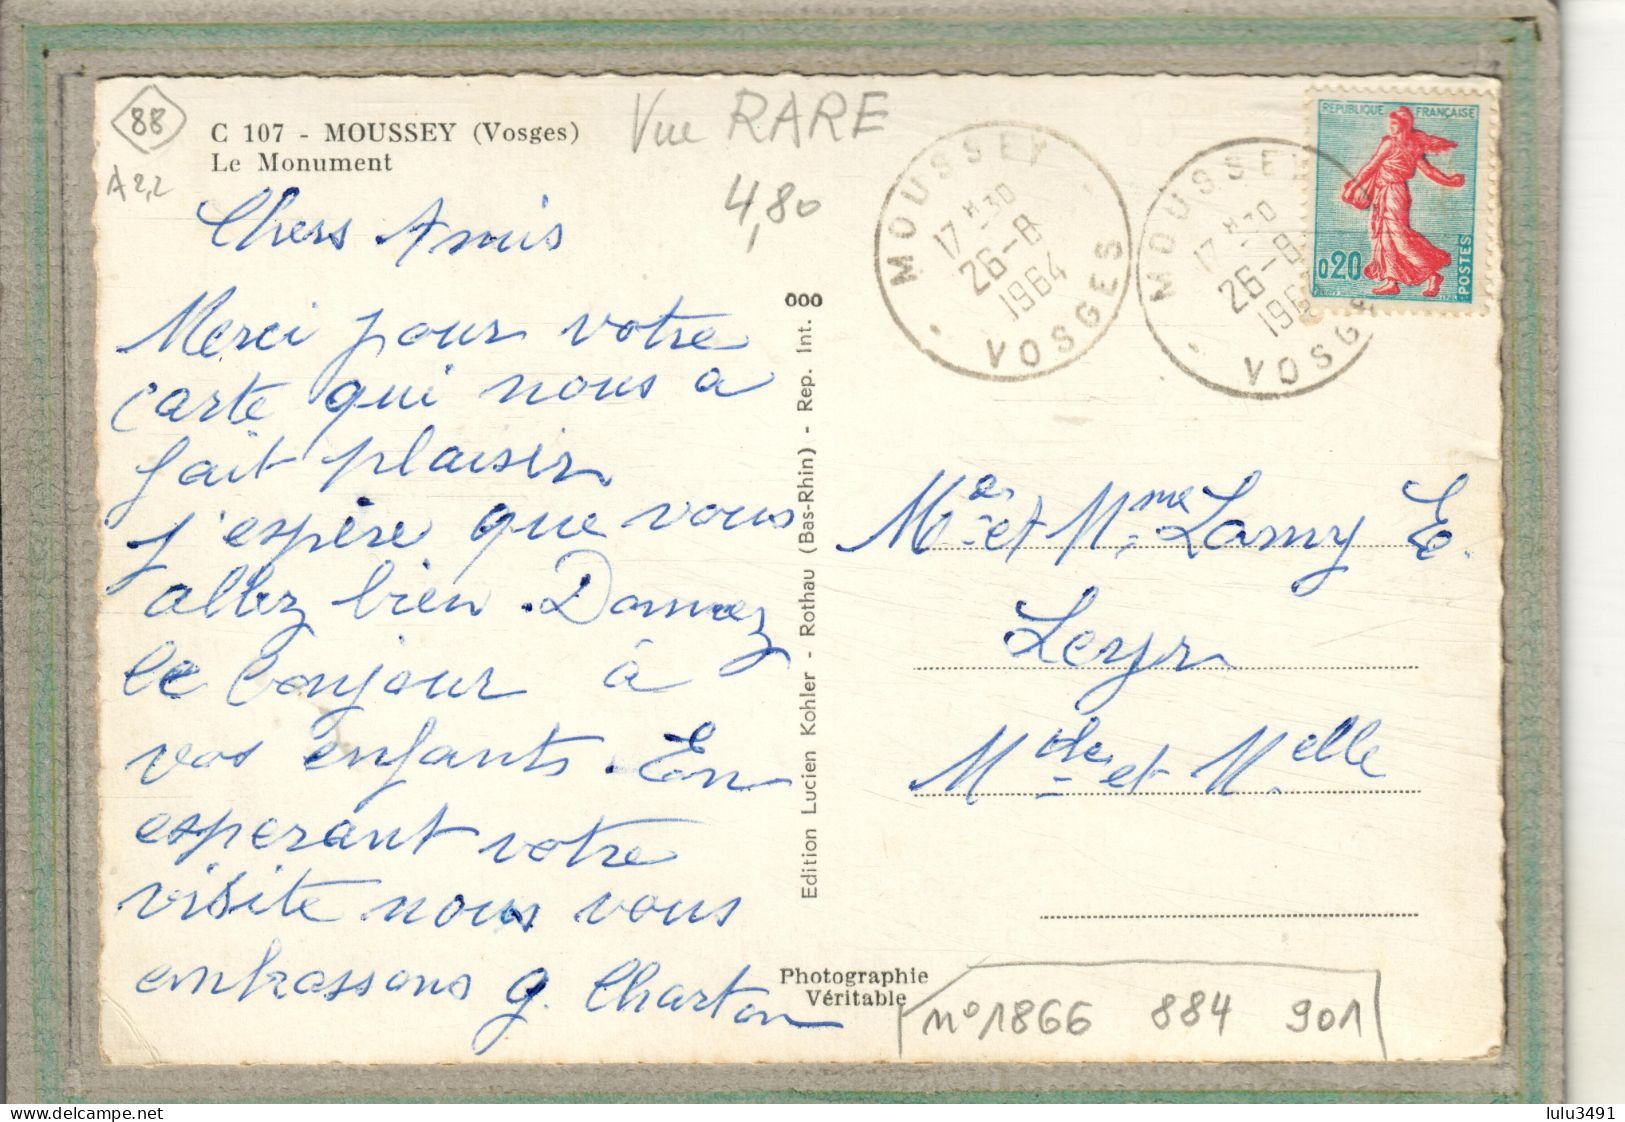 88
A 2,2
C 107 - MOUSSEY (Vosges)
Le Monument
Vue RARE
4,80
MOUSSEY
17 H 30
26-8
1964
VOSGES
MOUSSEY
17 H 30
26-8
196
VOSGES
REPUBLIQUE FRANÇAISE
0,20
POSTES
Chers Amis
Merci pour votre
carte qui nous a
fait plaisir
j'espère que vous
allez bien. Donnez
le bonjour à
vos enfants. En
esperant votre
visite nous vous
embrassons g. Charton
Edition Lucien Kohler - Rothau (Bas-Rhin) - Rep. Int. 000
Photographie
Véritable
Mr et Mme Lamy E.
Leyr
Mthe et Melle
n° 1866 884 901
lulu3491